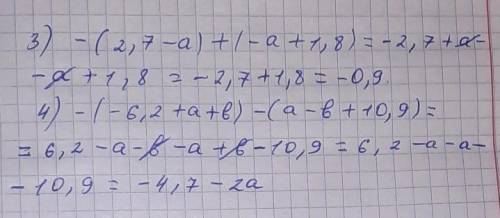 3) -(2,7-a)+(-a+1,8)=-2,7+a-
-a+1,8 = -2,7+1,8=-0,9
4) -(-6,2+a+в)-(a-в+10,9)=
=6,2-a-в-a+в-10,9=6,2-a-a-
-10,9=-4,7-2a